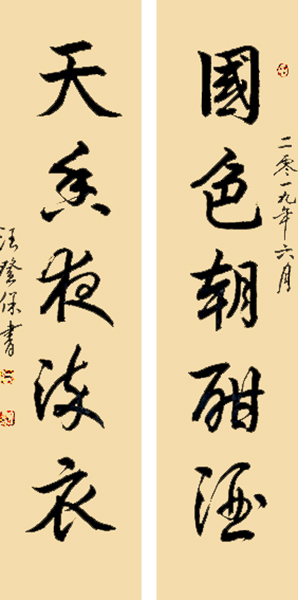 二零一九年六月
國色朝酣酒
天香夜染衣
汪登保書